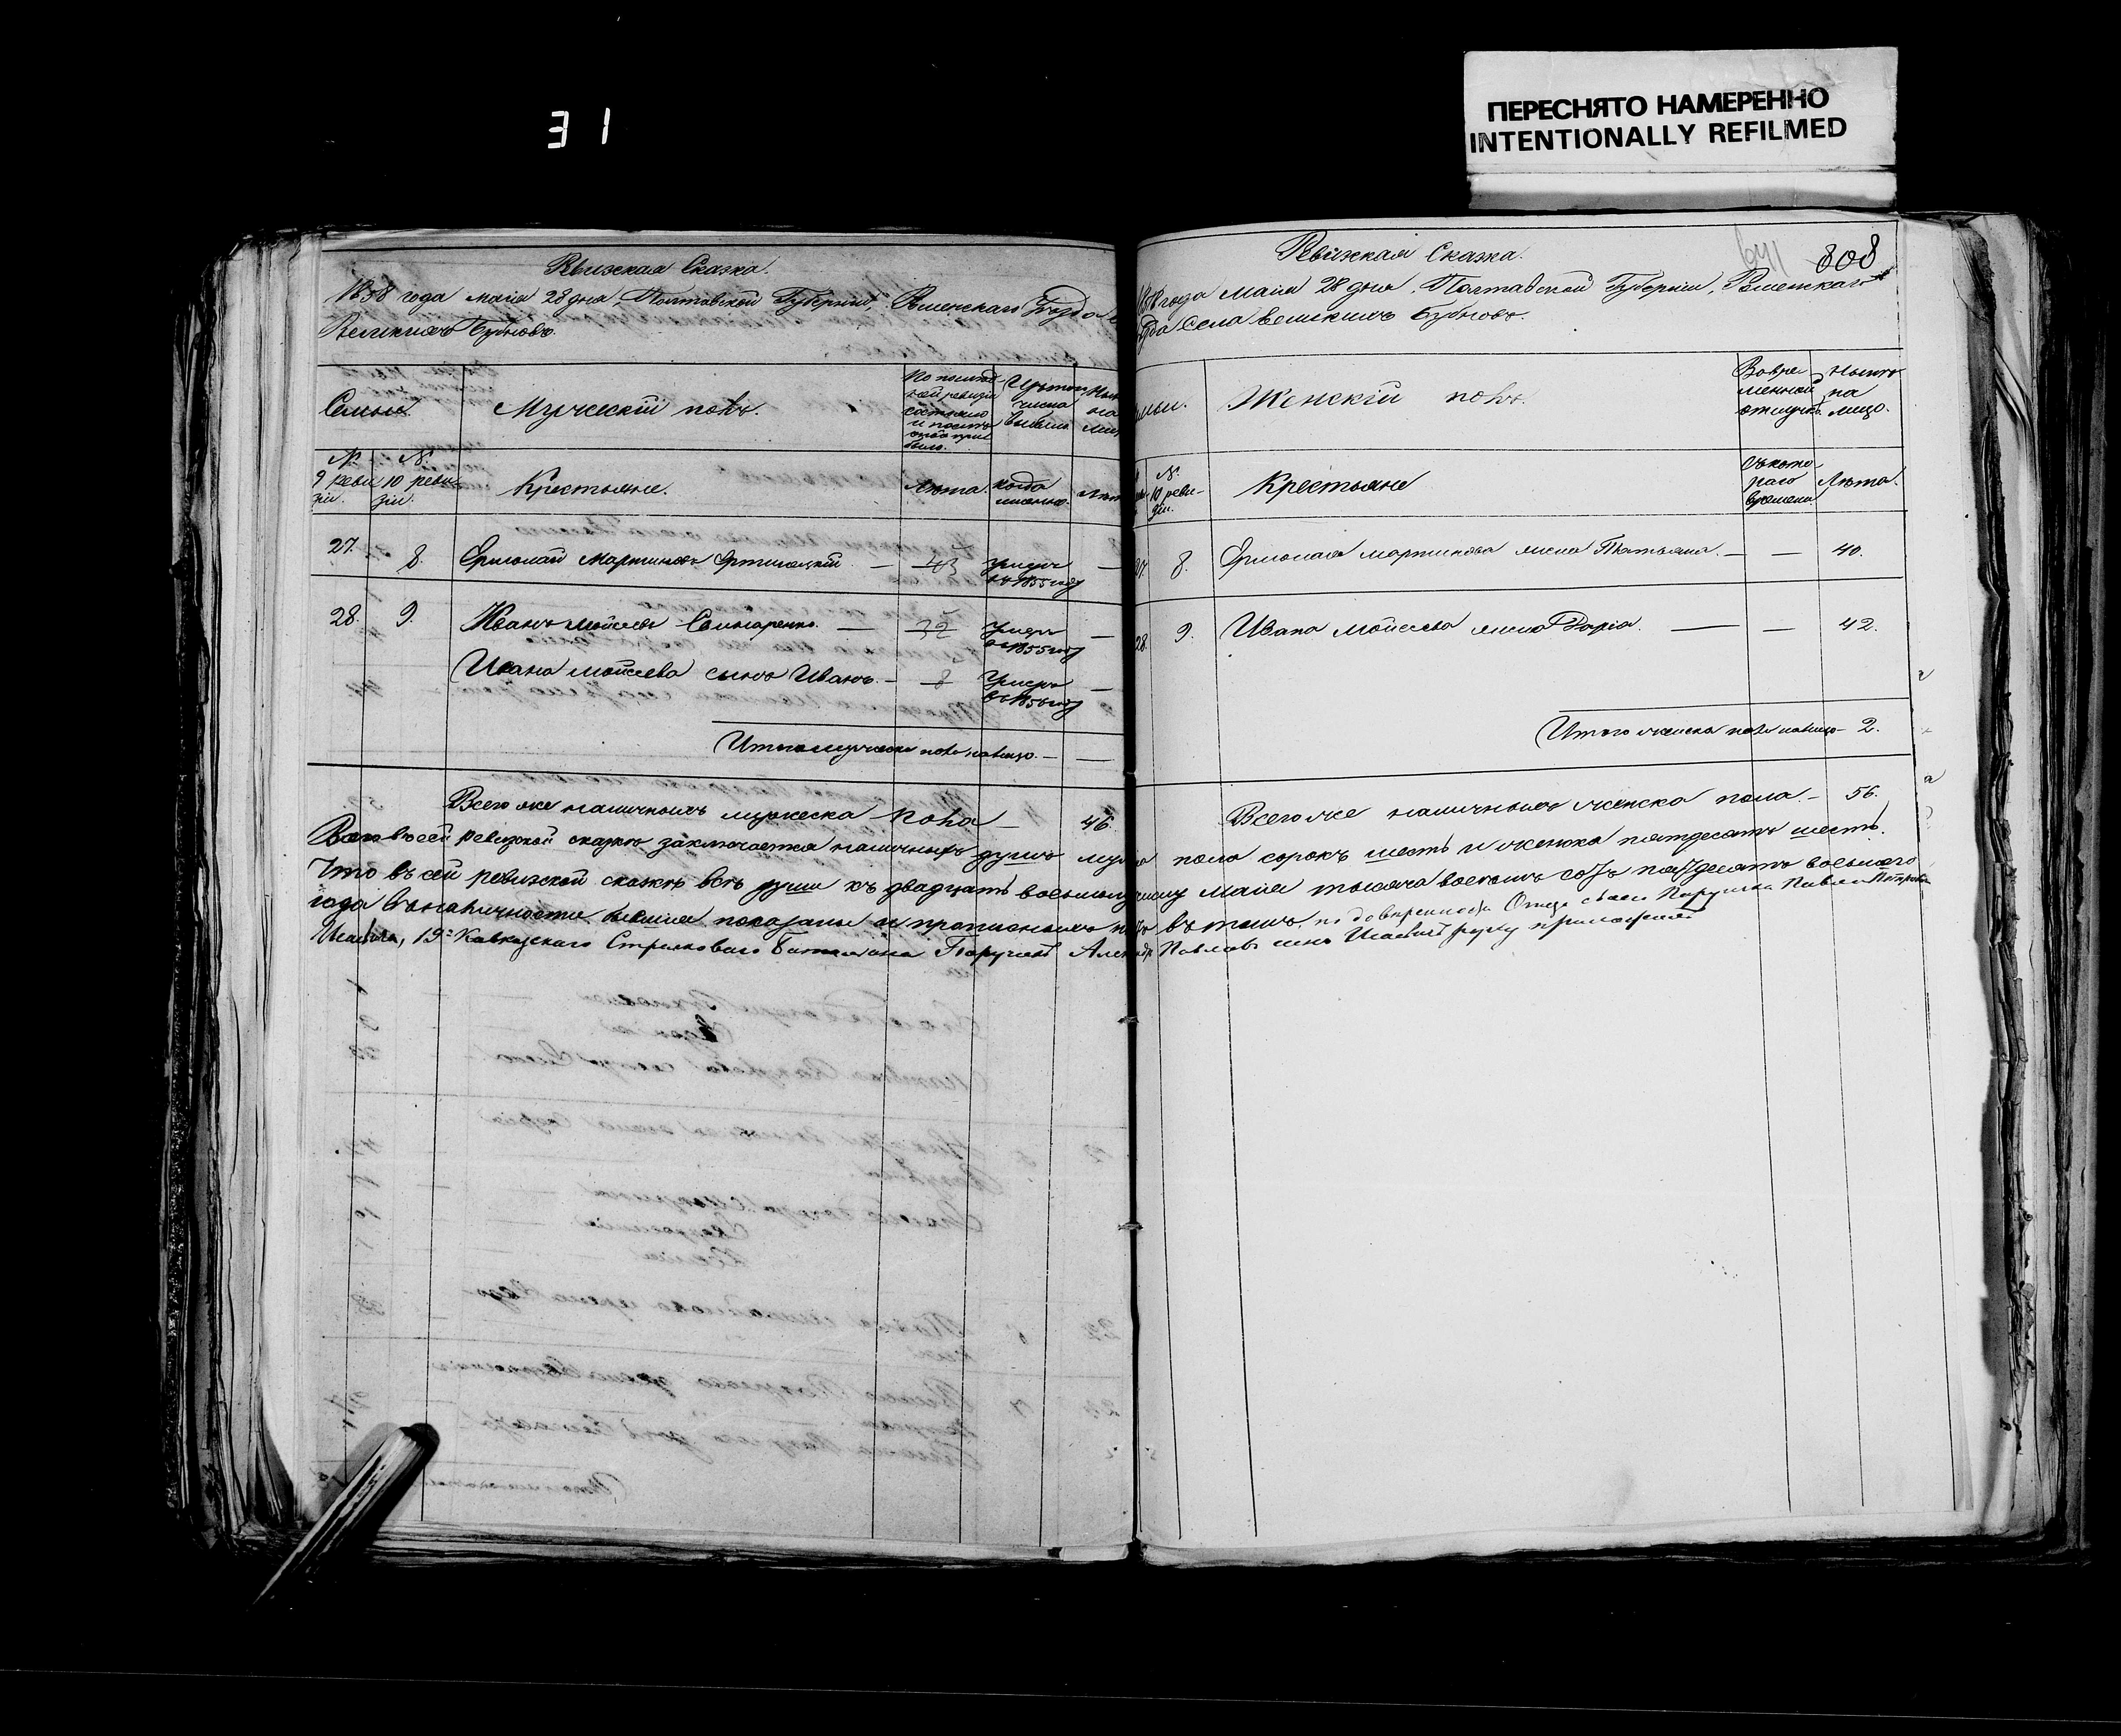 31
ПЕРЕСНЯТО НАМЕРЕННО
INTENTIONALLY REFILMED
Ревизкая Сказка.
1858 года майя 28 дня, Полтавской Губерніи, Роменскаго Уезда
Великихъ Бубновъ.
Семьи.
Мужескій полъ.
По послед-
ней ревизіи
состояло
и после
того при
было.
Изъ того
числа
выбыло
Ныне
на
лицо
№
9 реви
зіи.
№.
10 реви-
зіи.
Крестьяне.
Лета.
когда
именно.
Лет
27.
8.
Ермолай Мартиновъ
43
умеръ
въ 1855 году
28.
9.
Иванъ Мойсеевъ
32
Умеръ
въ 1855 году
Ивана Мойсеева сынъ Иванъ.
8
Умеръ
въ 1856 году
Итого мужеска пола налицо
Всего же наличныхъ мужеска пола
46.
Ревизкая Сказка.
641
808
1858 года Майя 28 дня, Полтавской Губерніи, Роменскаго
Уезда Села Великихъ Бубновъ.
Семьи.
Женскій полъ.
Вовре-
менной
отлучке
Ныне
на
лицо.
№.
10 реви-
зіи.
Крестьяне
Съ кото
раго
времени.
Лета.
27.
8.
Ермолая Мартинова жена Татьяна.
40.
28.
9.
Ивана Мойсеева жена Дарія.
42.
Итого женска пола налицо 2.
Всего же наличныхъ женска пола
56.
Всего въ сей ревизской сказке заключается наличныхъ душъ мужеска пола сорокъ шесть и женска пятдесятъ шесть.
Что въ сей ревизской сказке все души къ двадцать восьмому числу Майя тысяча восемь сотъ пятдесятъ восьмаго
года въ наличности бывшія показаны и прописныхъ нетъ въ томъ, по доверенности Отца своего Поручика Павла Петрова
19го Кавказскаго Стрелковаго Баталіона Поручикъ Александръ Павловъ сынъ руку приложилъ